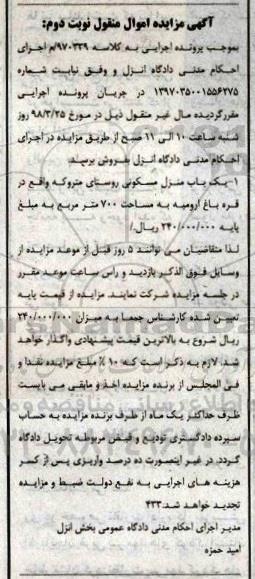 آگهی مزایده اموال منقول نوبت دوم:
بموجب پرونده اجرایی به کلاسه ۹۷۰۳۳۹/م اجرای
احکام مدنی دادگاه انزل و وفق نیابت شماره
۱۳۹۷۰۳۵۰۰۱۵۵۶۲۷۵ در جریان پرونده اجرایی
مقررگردیده مال غیر منقول ذیل در مورخ ۹۸/۳/۲۵ روز
شنبه ساعت ۱۰ الی ۱۱ صبح از طریق مزایده در اجرای
احکام مدنی دادگاه انزل بفروش برسد.
۱-یک باب منزل مسکونی روستای متروکه واقع در
قره باغ ارومیه به مساحت ۷۰۰ متر مربع به مبلغ
پایه ۲۴۰/۰۰۰/۰۰۰ ریال./
لذا متقاضیان می توانند ۵ روز قبل از موعد مزایده از
وسایل فوق الذکر بازدید و راس ساعت موعد مقرر
در جلسه مزایده شرکت نمایند. مزایده از قیمت پایه
تعیین شده کارشناس جمعا به میزان ۲۴۰/۰۰۰/۰۰۰
ریال شروع به بالاترین قیمت پیشنهادی واگذار خواهد
شد. لازم به ذکر است که ۱۰ % مبلغ مزایده نقدا و
فی المجلس از برنده مزایده اخذ و مابقی می بایست
ظرف حداکثر یک ماه از طرف برنده مزایده به حساب
سپرده دادگستری تودیع و قبض مربوطه تحویل دادگاه
گردد. در غیر اینصورت ده درصد واریزی پس از کسر
هزینه های اجرایی به نفع دولت ضبط و مزایده
تجدید خواهد شد.۴۳۳
مدیر اجرای احکام مدنی دادگاه عمومی بخش انزل
امید حمزه